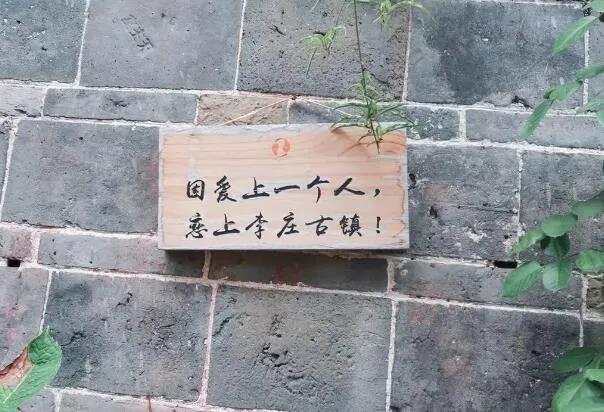 因爱上一个人，
恋上李庄古镇！